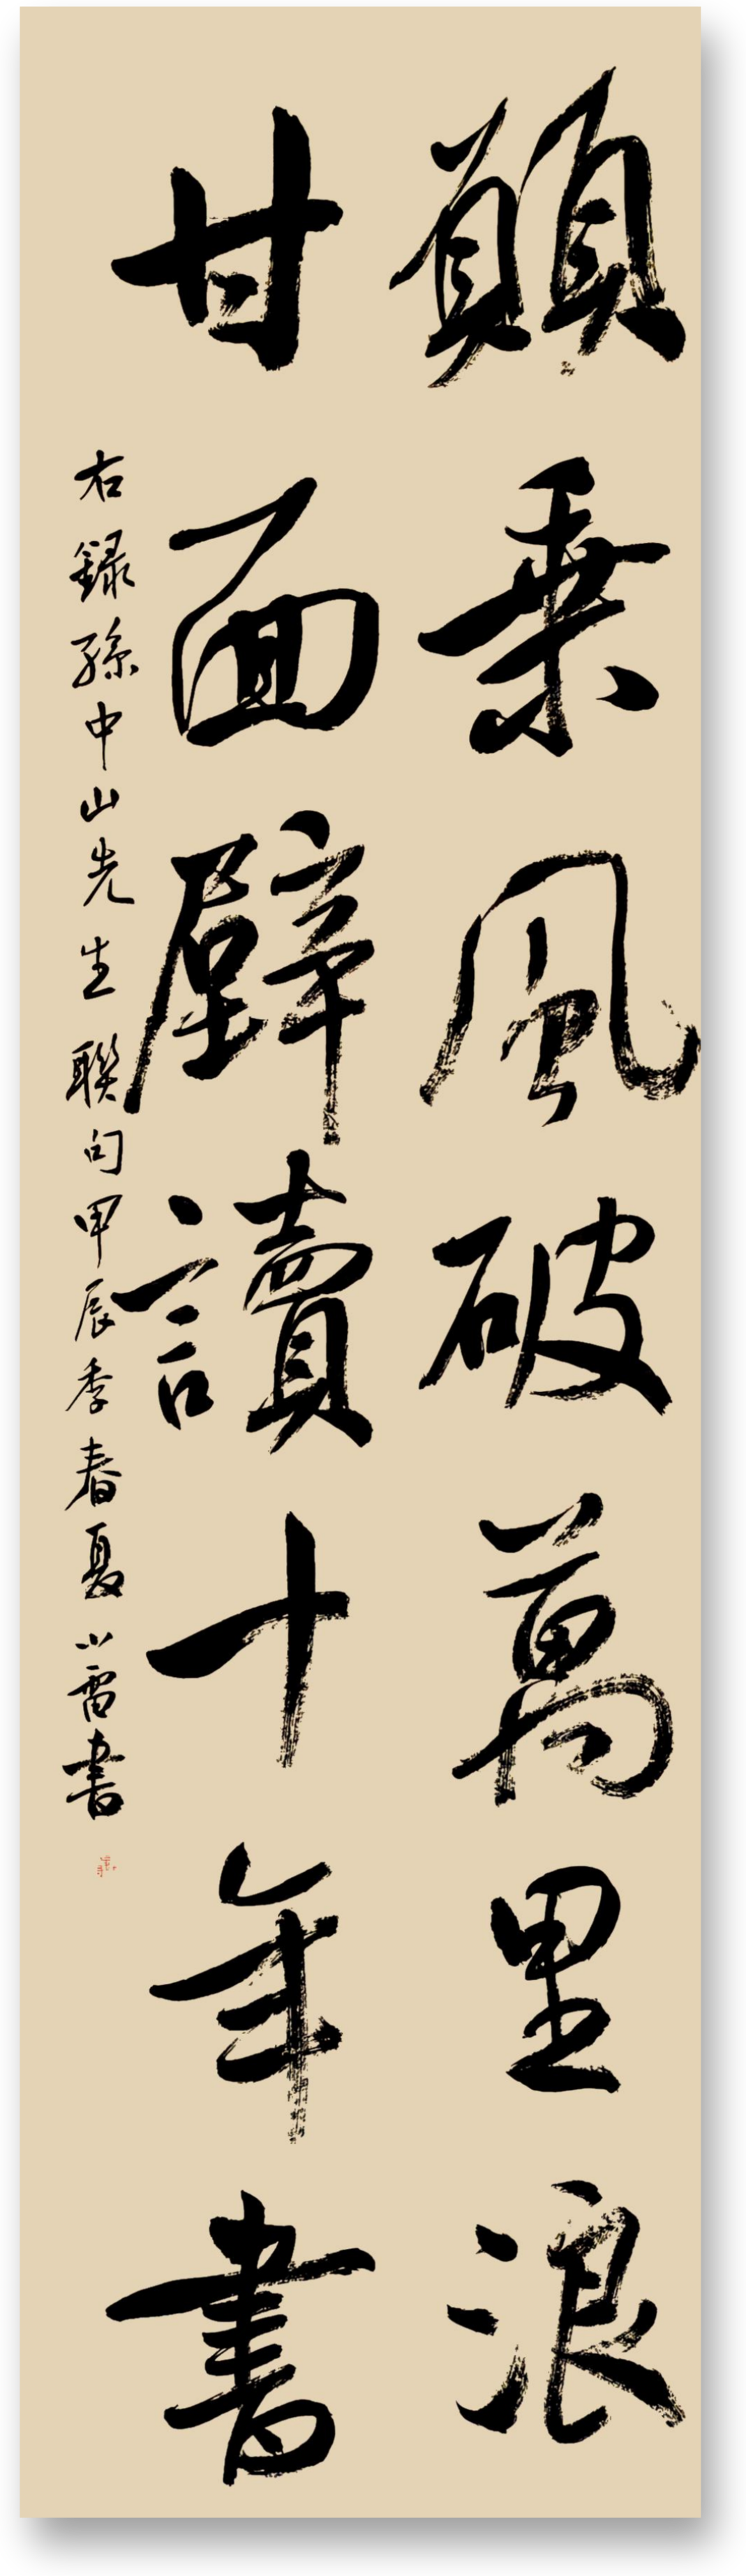 願乘風破萬里浪
甘面壁讀十年書
右録孫中山先生聯句甲辰季春夏小雷書